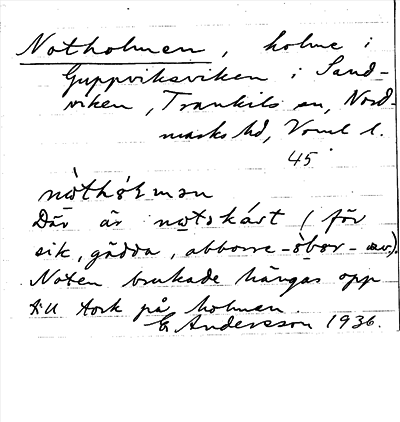 Notholmen, holme i
Guppviksviken i Sand-
viken, Trankils sn, Nord-
marks hd, Vrml l.
45
nòthόlmən
Där är notskårt (för
sik, gädda, abborre - òbər -
Noten brukade hängas opp
till tork på holmen.
E Andersson 1936.